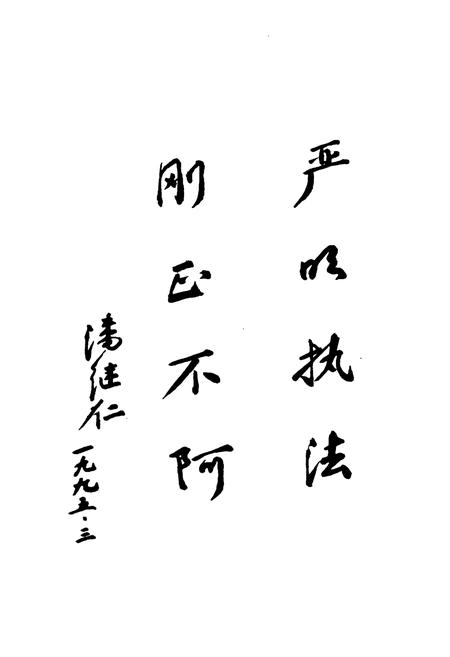 严明执法
刚正不阿
潘继仁
一九九五·三